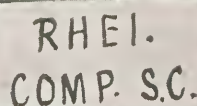 RHEI.
COMP. S.C.